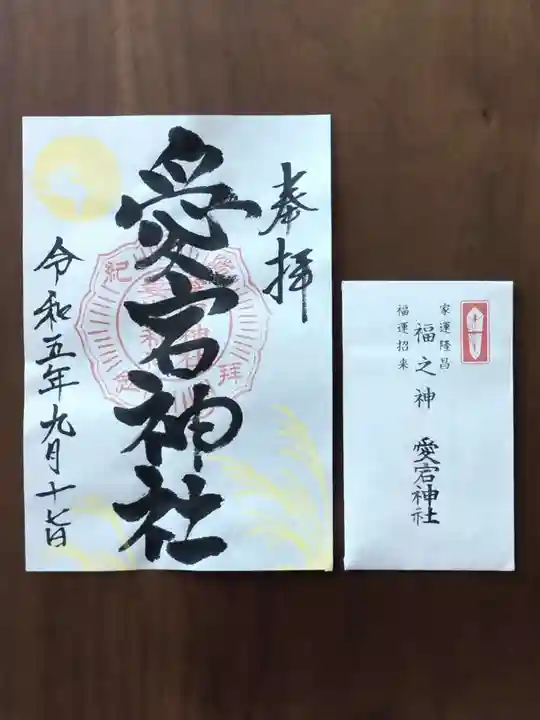 奉拝
愛宕神社
令和五年九月十七日
家運隆昌
福運招来
福之神
愛宕神社